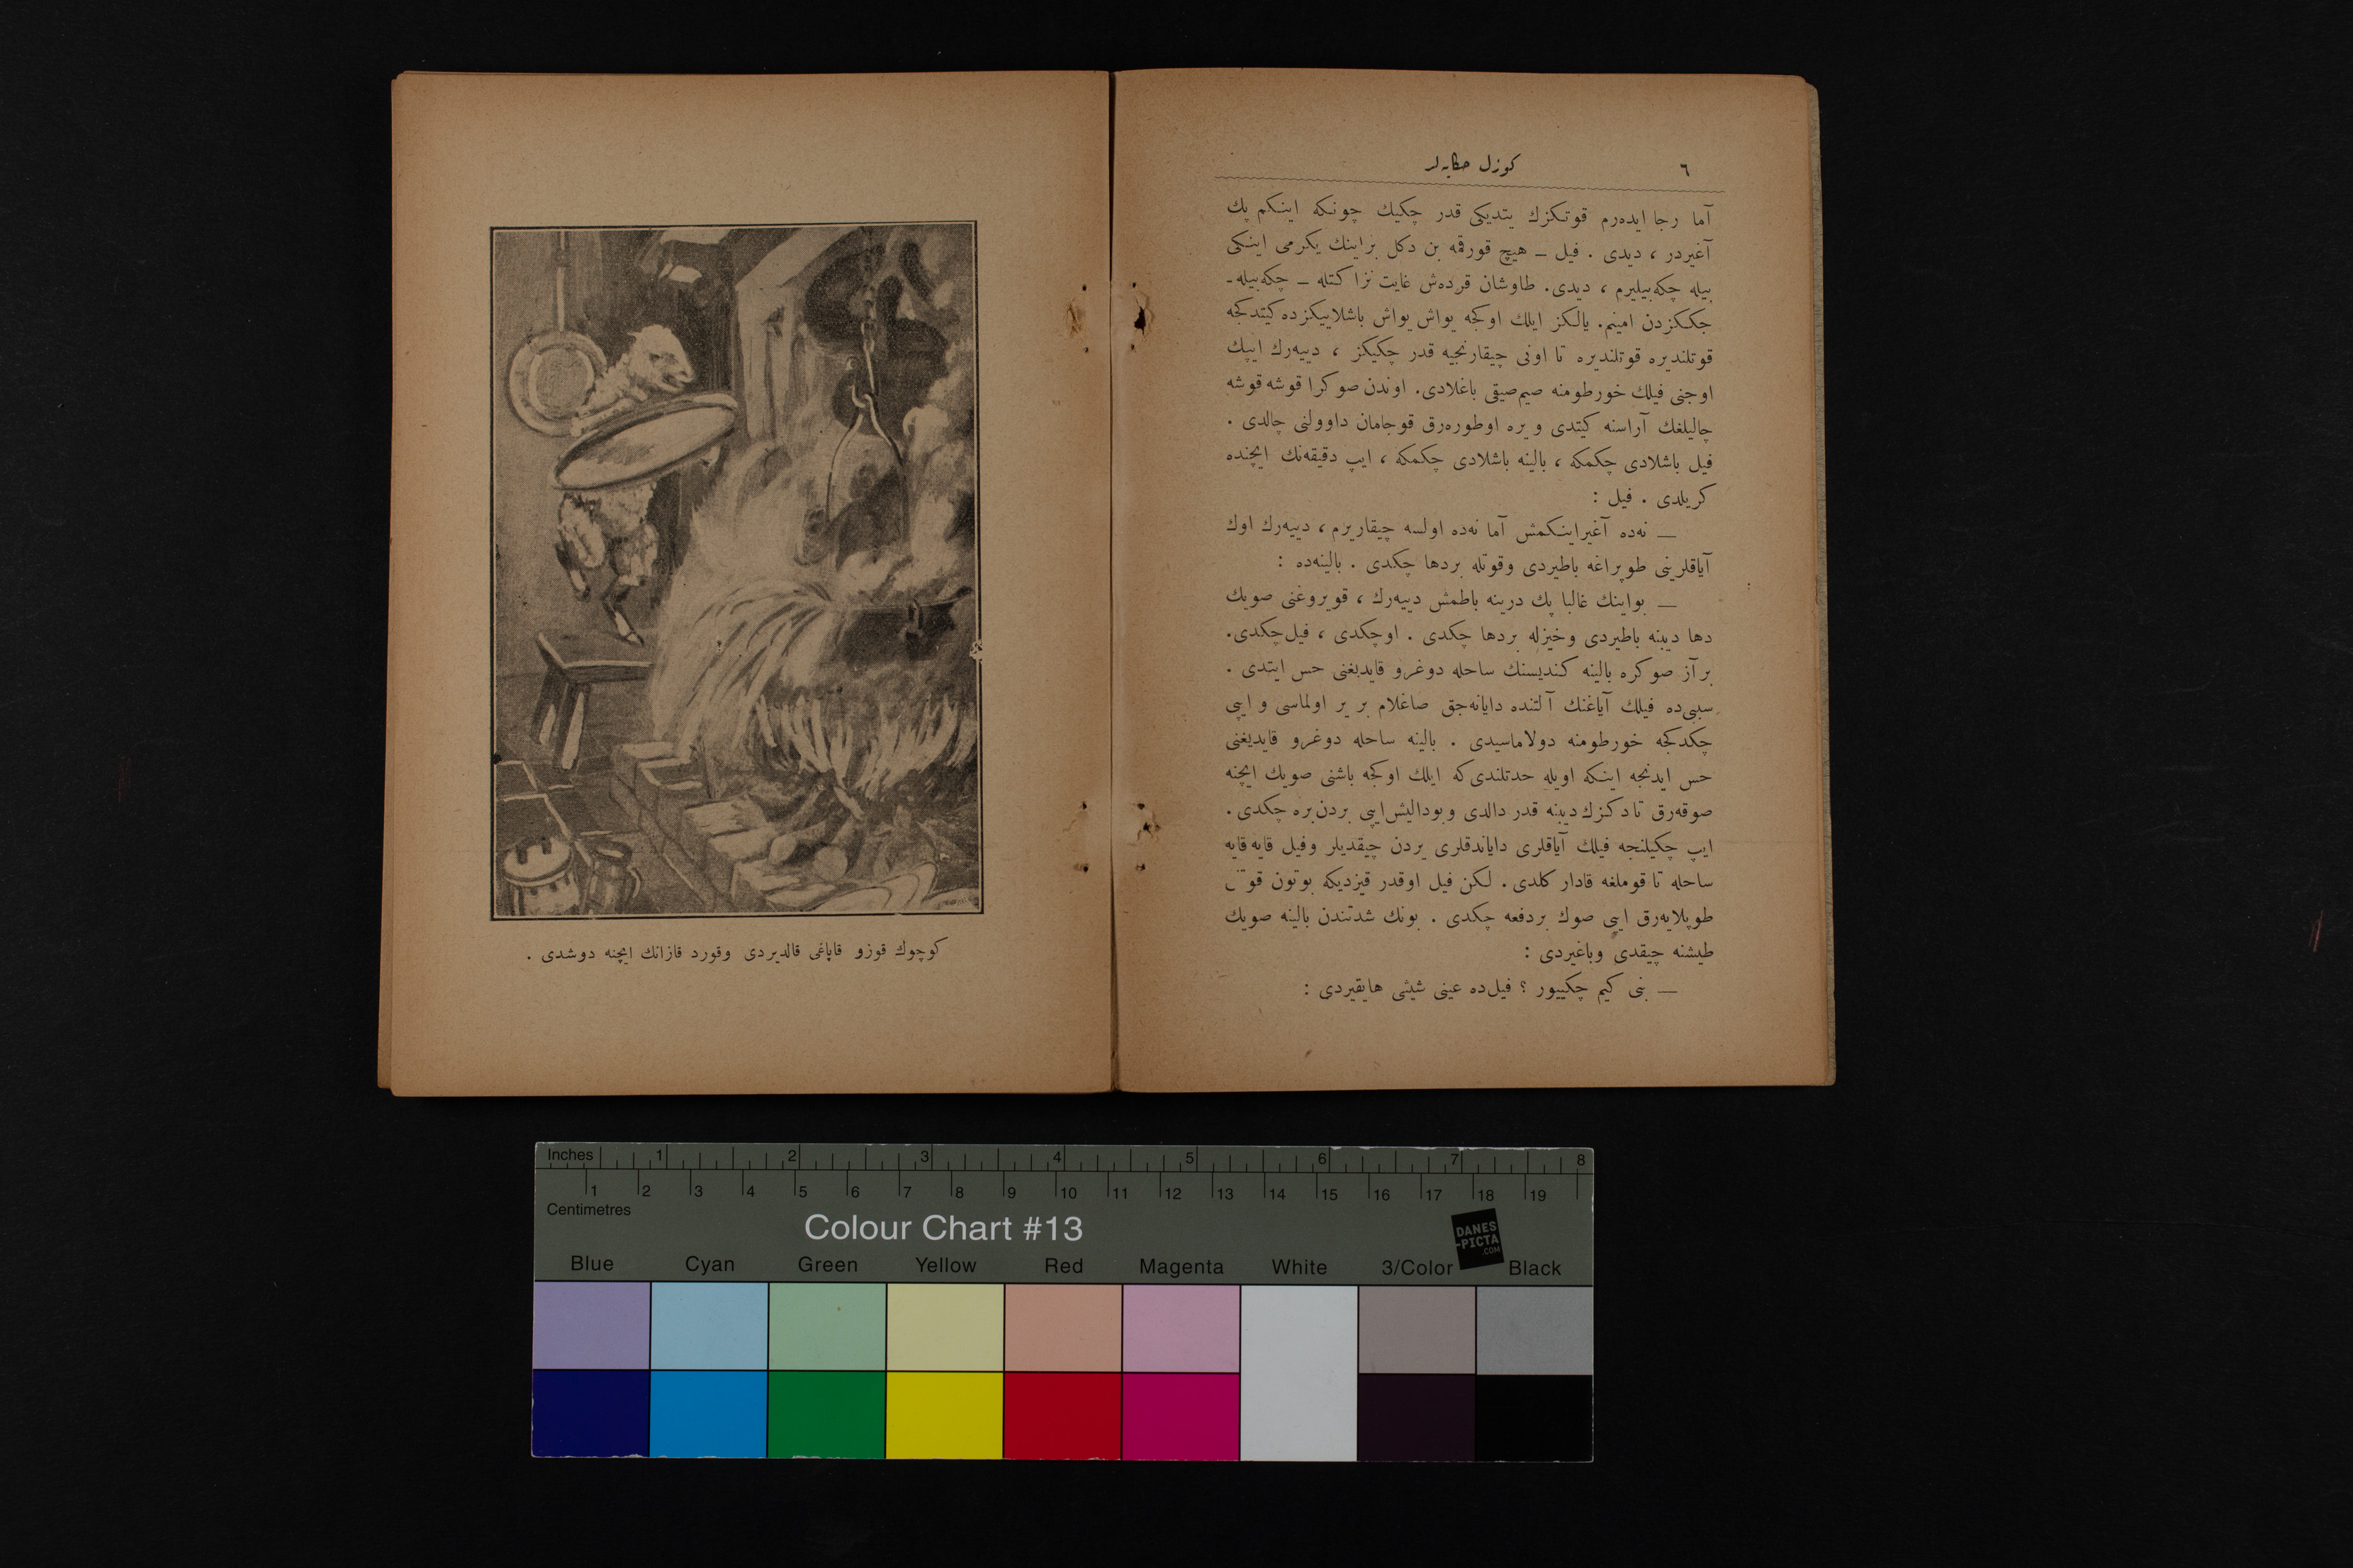 ٦
كوزل حكايه‌لر
آما رجا ايده‌رم قوتكزك يتديكى قدر چكيك چونكه اينكم پك
آغيردر ، ديدى . فيل ــ هيچ قورقمه بن دكل براينك يكرمى اينكى
بيله چكه‌بيليرم ، ديدى. طاوشان قرده‌ش غايت نزاكتله ــ چكه‌بيله-
جككزدن امينم. يالكز ايلك اوكجه يواش يواش باشلاييكزده كيتدكجه
قوتلنديره قوتلنديره تا اونى چيقارنجيه قدر چكيكز ، دييه‌رك ايپك
اوجنى فيلك خورطومنه صيم‌صيقى باغلادى. اوندن صوكرا قوشه قوشه
چاليلغك آراسنه كيتدى و يره اوطوره‌رق قوجامان داوولنى چالدى .
فيل باشلادى چكمكه ، بالينه باشلادى چكمكه ، ايپ دقيقه‌نك ايچنده
كريلدى . فيل :
ــ نه‌ده آغيراينكمش آما نه‌ده اولسه چيقاريرم ، دييه‌رك اوك
آياقلرينى طوپراغه باطيردى وقوتله بردها چكدى . بالينه‌ده :
ــ بواينك غالبا پك درينه باطمش دييه‌رك ، قويروغنى صويك
دها ديبنه باطيردى وخيزله بردها چكدى . اوچكدى ، فيل چكدى.
برآز صوكره بالينه كنديسنك ساحله دوغرو قايديغنى حس ايتدى .
سببى‌ده فيلك آياغنك آلتنده دايانه‌جق صاغلام بر ير اولماسى و ايپى
چكدكجه خورطومنه دولاماسيدى . بالينه ساحله دوغرو قايديغنى
حس ايدنجه اينكه اويله حدتلندى‌كه ايلك اوكجه باشنى صويك ايچنه
صوقه‌رق تا دكزك ديبنه قدر دالدى وبوداليش ايپى بردن‌بره چكدى.
ايپ چكيلنجه فيلك آياقلرى داياندقلرى يردن چيقديلر وفيل قايه قايه
ساحله تا قوملغه قادار كلدى. لكن فيل اوقدر قيزديكه بوتون
طوپلايه‌رق ايپى صوك بردفعه چكدى . بونك شدتندن بالينه صويك
طيشنه چيقدى وباغيردى :
ــ بنى كيم چكييور ؟ فيل‌ده عينى شيئى هايقيردى :
كوچوك قوزو قاپاغى قالديردى وقورد قازانك ايچنه دوشدى .
Inches 1 2 3 4 5 6 7 8
1 2 3 4 5 6 7 8 9 10 11 12 13 14 15 16 17 18 19
Centimetres
Colour Chart #13
DANES
-PICTA
.COM
Blue Cyan Green Yellow Red Magenta White 3/Color Black